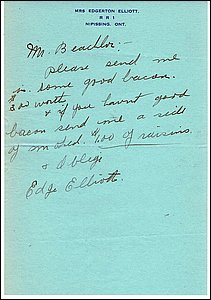 MRS EDGERTON ELLIOTT.
R R 1
NIPISSING, ONT.
Mr. Beachler:-
please send me
some good bacon.
worth,
& if you havnt good
bacon send me a side
of smoked. $1.00 of raisins.
& Oblige
Edge Elliott.